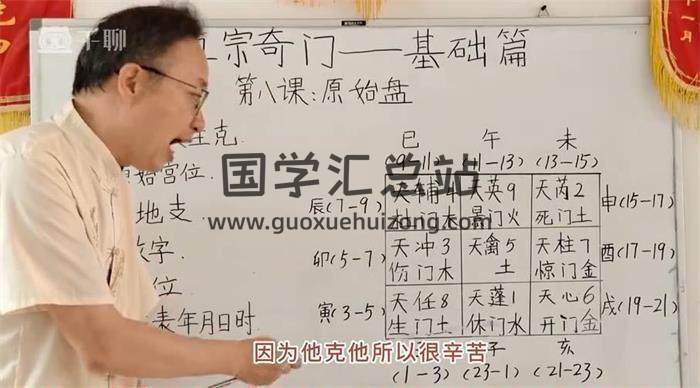 千聊
宗奇门——基础篇
第八课:原始盘
生克
始宫位
地支
字
位
年月日时
巳 午 未
(9-11) (11-13) (13-15)
辰(7-9) 天辅4 天英9 天芮2 申(15-17)
门木 景门火 死门土
卯(5-7) 天冲3 天禽5 天柱7 酉(17-19)
伤门木 土 惊门金
寅(3-5) 天任8 天蓬1 天心6 戌(19-21)
生门土 休门水 开门金
子 亥
(1-3) (23-1) (21-23)
国学汇总站
www.guoxuehuizong.com
因为他克他所以很辛苦